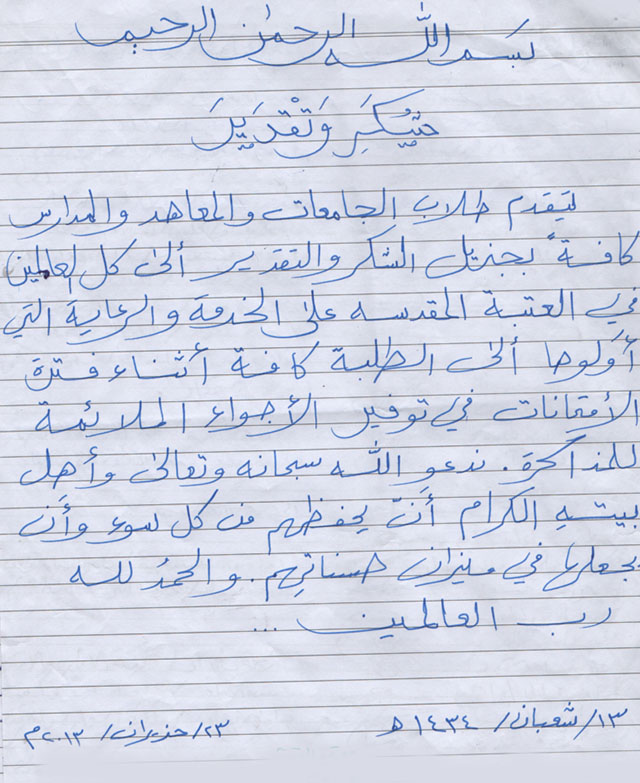 بسم الله الرحمن الرحيم
شُكر وَتَقدير
يتقدم طلاب الجامعات والمعاهد والمدارس
كافةً بجزيل الشكر والتقدير ألى كل العاملين
في العتبة المقدسه على الخدمة والرعاية التي
أَولوها ألى الطلبة كافة أثناء فترة
الأمتحانات في توفير الأجواء الملائمة
للمذاكرة. ندعو الله سبحانه وتعالى وأهل
بيتهِ الكرام أَنْ يحفظهم من كل سوء وأَن
يجعلها في ميزان حسناتِهم. والحمدُ لله
رب العالمين ...
١٣/ شعبان/ ١٤٣٤ هـ ٢٣/ حزيران/ ٢٠١٣ م